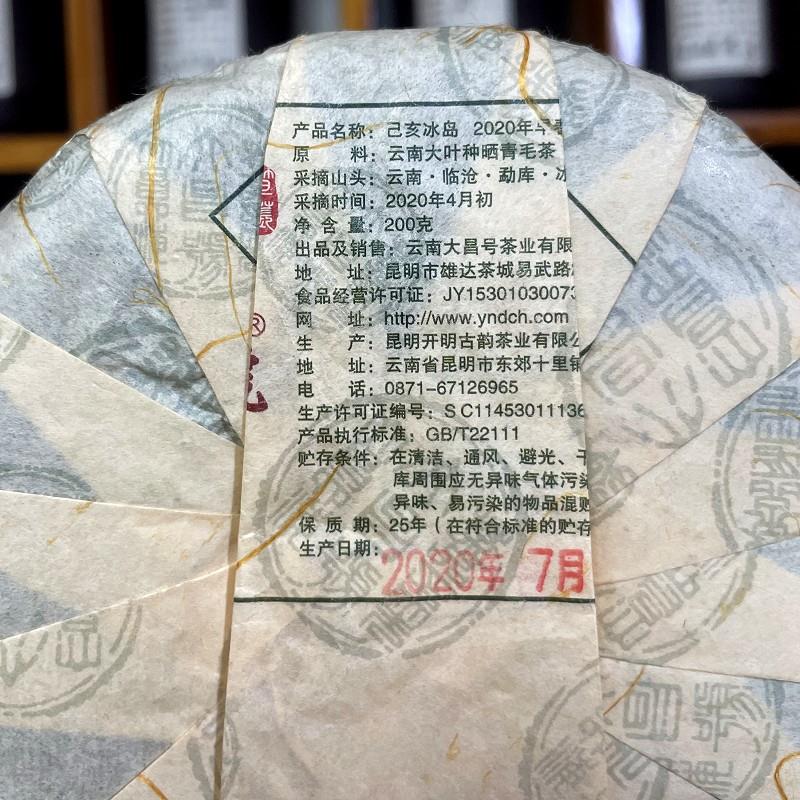 产品名称：己亥冰岛 2020年早春
原 料：云南大叶种晒青毛茶
采摘山头：云南·临沧·勐库·冰
采摘时间：2020年4月初
净 含 量：200克
出品及销售：云南大昌号茶业有限
地 址：昆明市雄达茶城易武路
食品经营许可证：JY15301030073
网 址：http://www.yndch.com
生 产：昆明开明古韵茶业有限公
地 址：云南省昆明市东郊十里铺
电 话：0871-67126965
生产许可证编号：SC11453011136
产品执行标准：GB/T22111
贮存条件：在清洁、通风、避光、干
库周围应无异味气体污染
异味、易污染的物品混贮
保 质 期：25年（在符合标准的贮存
生产日期：
2020年 7月
®